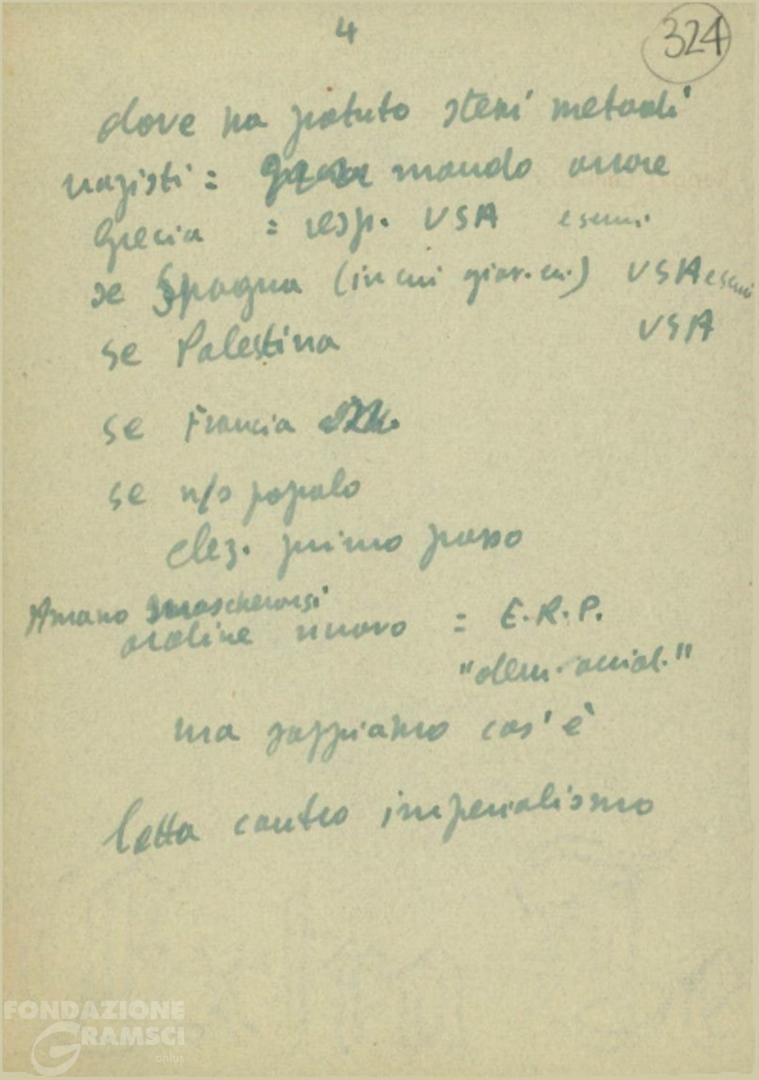 4
324
dove ha potuto stessi metodi
nazisti = mondo orrore
Grecia = resp. USA esemi
se Spagna (in cui giov. ) USA
se Palestina USA
se Francia
se n/s popolo
elez. primo passo
Amano mascherarsi
ordine nuovo = E.R.P.
"dem. social."
ma sappiamo cos'è
lotta contro imperialismo
FONDAZIONE
GRAMSCI
onlus